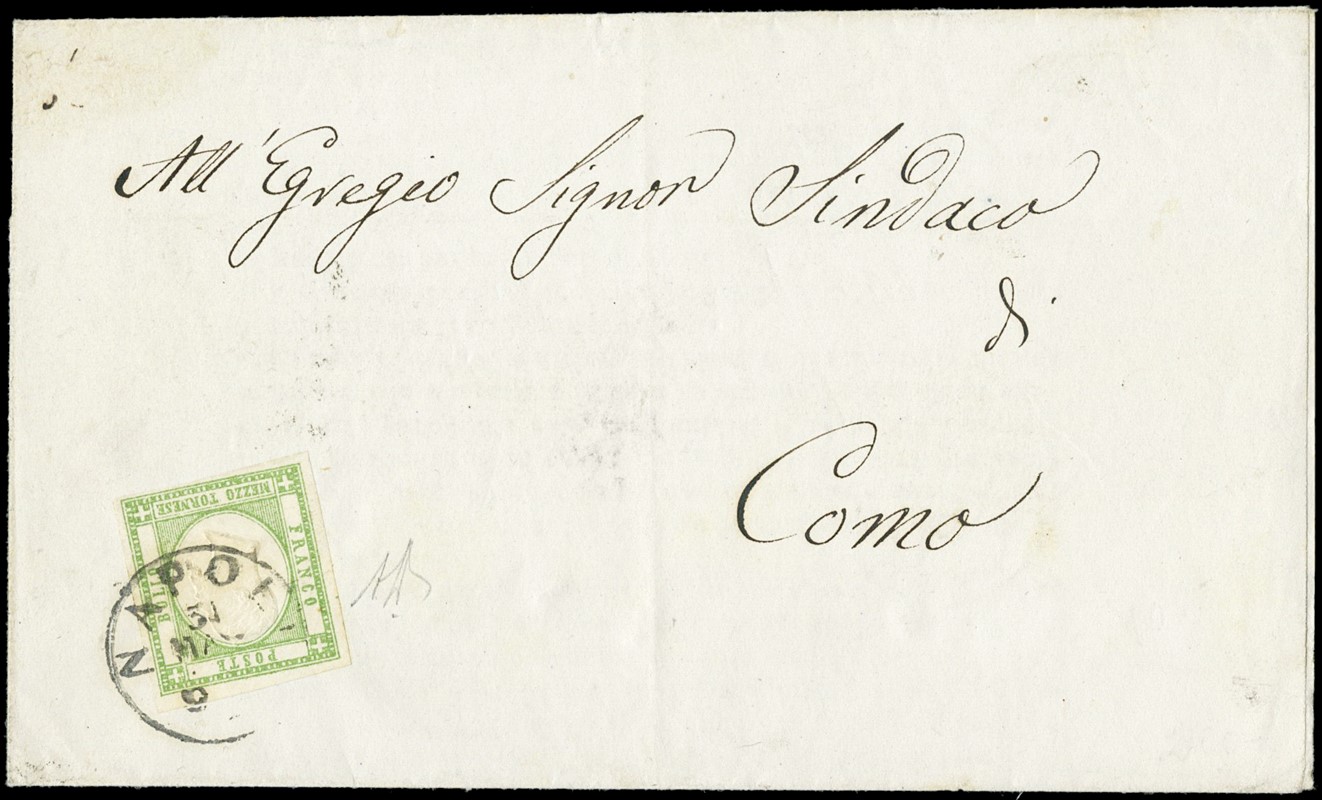 All' Egregio Signor Sindaco
di
Como
MEZZO TORNESE
FRANCO
BOLLO
POSTE
NAPOLI
31